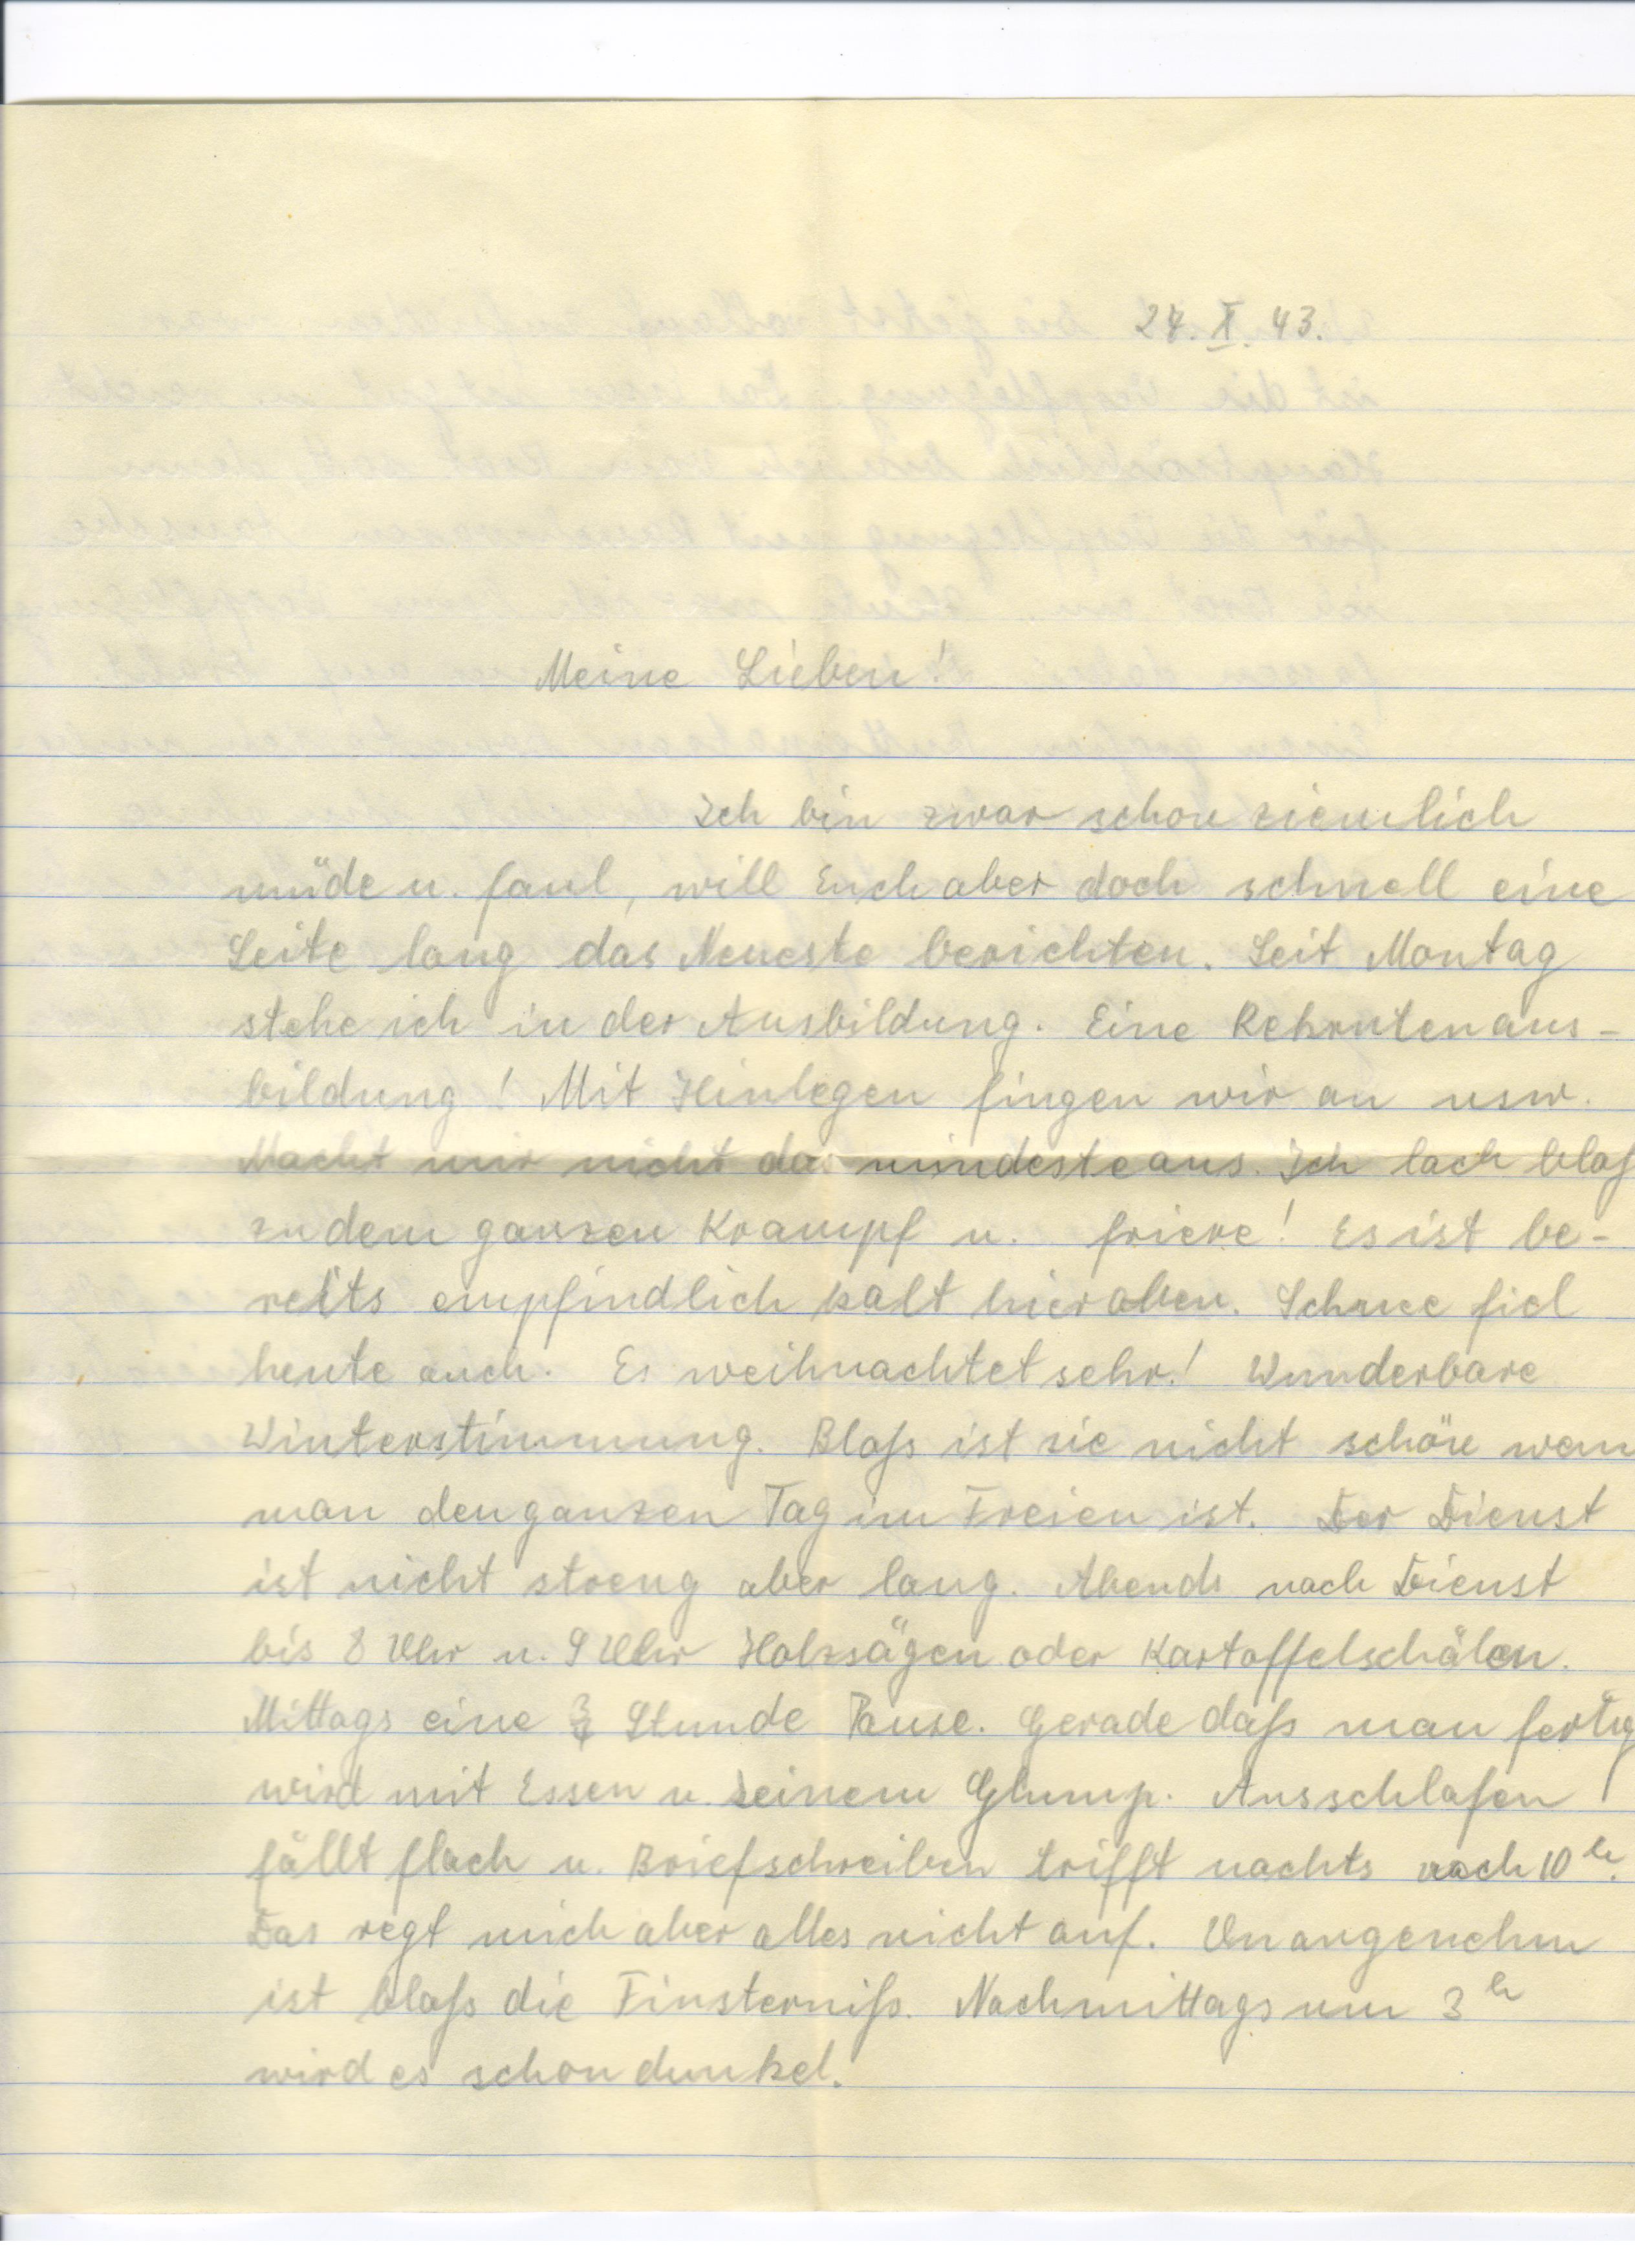 27. X. 43.
Meine Lieben!
Ich bin zwar schon ziemlich
müde u. faul, will Euch aber doch schnell eine
Seite lang das Neueste berichten. Seit Montag
stehe ich in der Ausbildung. Eine Rekrutenaus-
bildung! Mit Hinlegen fingen wir an usw.
Macht mir nicht das mindeste aus. Ich lach bloß
zu dem ganzen Krampf u. friere! Es ist be-
reits empfindlich kalt hier oben. Schnee fiel
heute auch. Es weihnachtet sehr! Wunderbare
Winterstimmung. Bloß ist sie nicht schön wenn
man den ganzen Tag im Freien ist. Der Dienst
ist nicht streng aber lang. Abends nach Dienst
bis 8 Uhr u. 9 Uhr Holzsägen oder Kartoffelschälen.
Mittags eine ¾ Stunde Pause. Gerade daß man fertig
wird mit Essen u. seinem Glump. Ausschlafen
fällt flach u. Briefschreiben trifft nachts nach 10 h.
Das regt mich aber alles nicht auf. Unangenehm
ist bloß die Finsterniß. Nachmittags um 3 h
wird es schon dunkel.